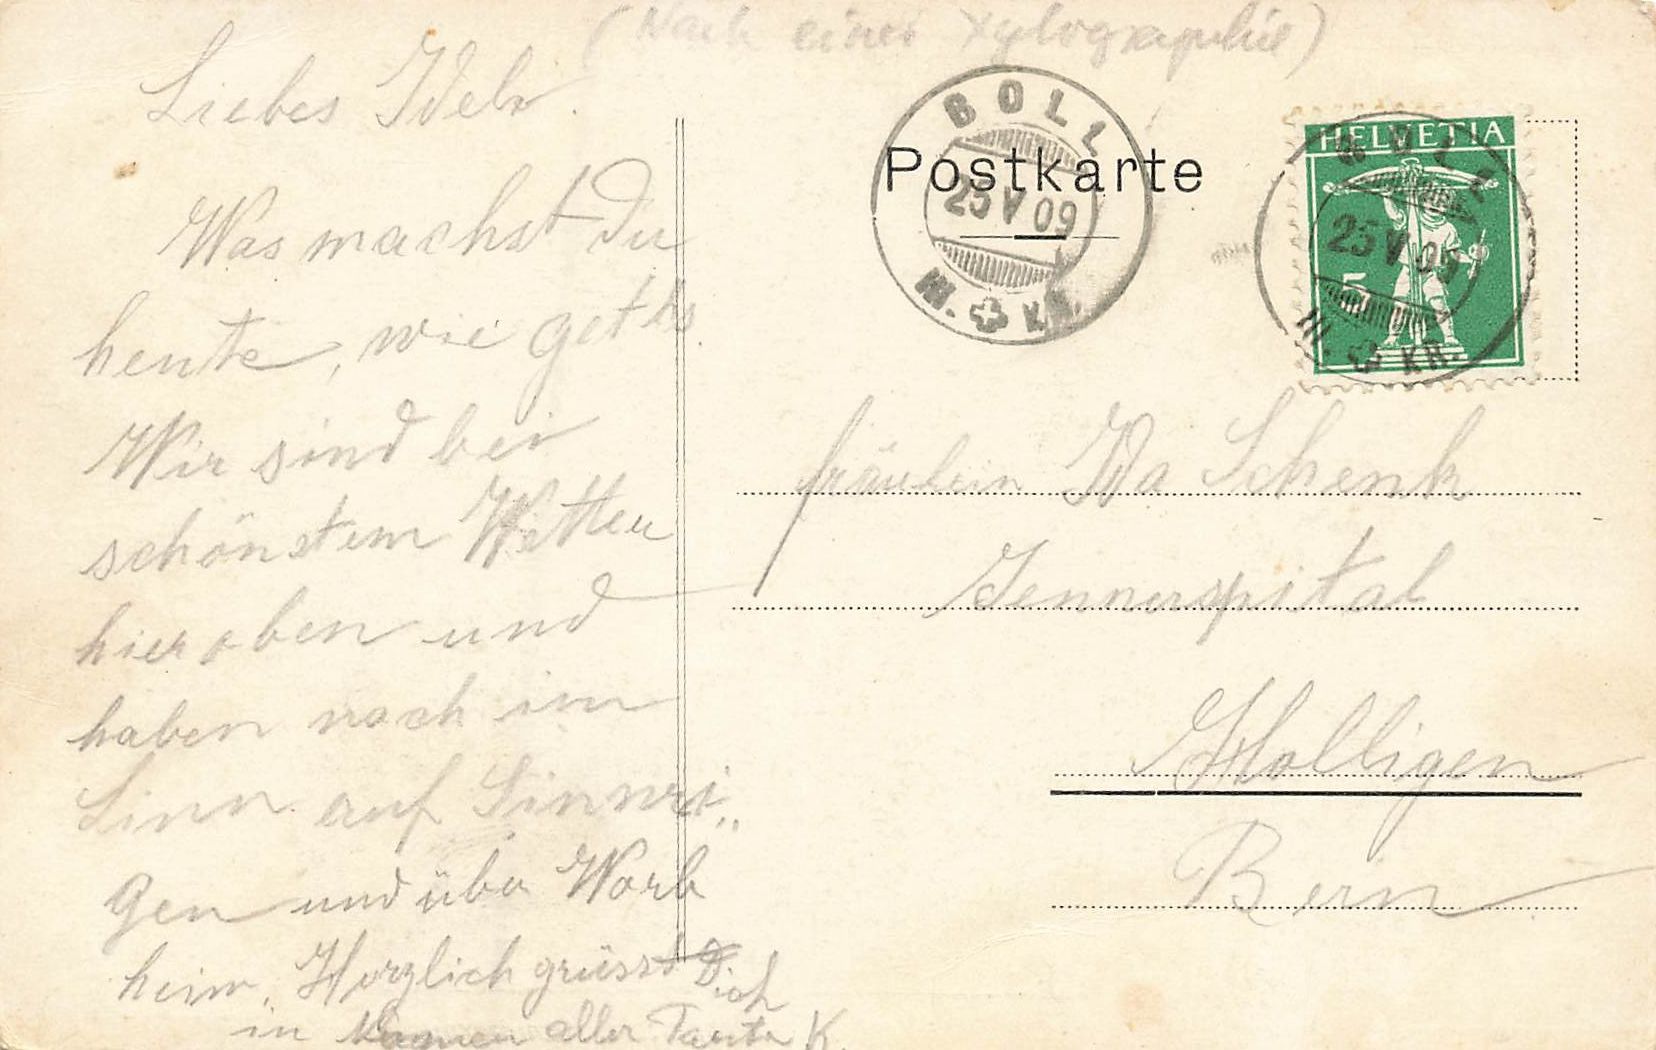 (Nach einer Xylographie)
Liebes Ideli.
Was machst Du
heute, wie geht's
Wir sind bei
schönstem Wetter
hier oben und
haben noch im
Sinn auf Sinneri„
gen und über Worb
heim. Herzlich grüsst Dich
in Namen aller Tante K.
Postkarte
BOLL
25 V 09
III. KR.
HELVETIA
5
BOLL
25 V 09
III. KR.
Fräulein Ida Schenk
Jennerspital
Holligen
Bern